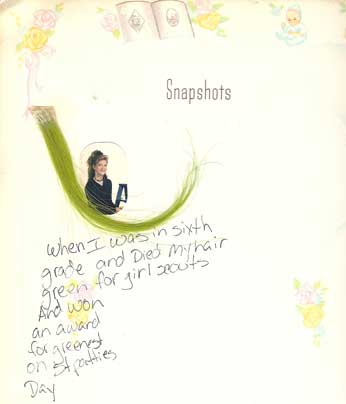 Snapshots
when I was in sixth
grade and Died My hair
green for girl scouts
And won
an award
for greenest
on St patties
Day